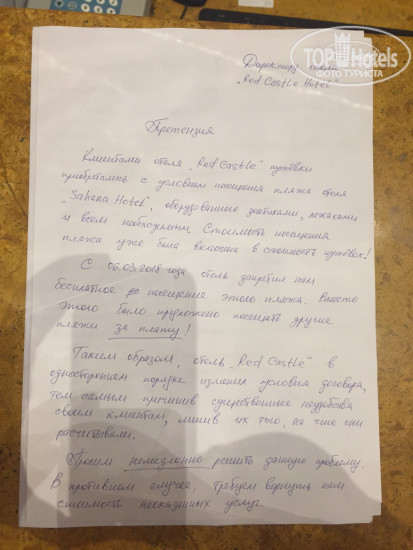 TOPHotels
ФОТО ТУРИСТА
Директору отеля
„Red Castle Hotel"
Претензия
Клиентами отеля „Red Castle" путёвки
приобретались с условием посещения пляжа отеля
„Sahara Hotel", оборудованного зонтиками, лежаками
и всем необходимым. Стоимость посещения
пляжа уже была включена в стоимость путёвок!
С 06.03.2018 года отель запретил нам
бесплатное посещение этого пляжа. Вместо
этого было предложено посещать другие
пляжи за плату!
Таким образом, отель „Red Castle" в
одностороннем порядке изменил условия договора,
тем самым причинив существенные неудобства
своим клиентам, лишив их того, на что они
рассчитывали.
Просим немедленно решить данную проблему.
В противном случае, требуем вернуть нам
стоимость неоказанных услуг.